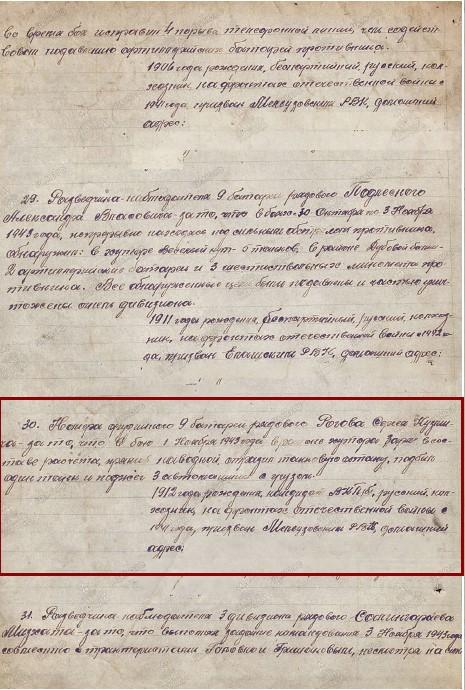 во время боя исправил 4 порыва телефонной линии, чем содейст
вовал подавлению артиллерийских батарей противника.
1906 года рождения, беспартийный, русский, кол-
хозник, на фронтах отечественной войны с
1941 года, призван РВК, домашний
адрес:
"
29. Разведчика-наблюдателя 9 батареи рядового
Александра Власовича - за то, что в боях с 30 Октября по 3 Ноября
1943 года, непрерывно находясь под сильным огнём противника,
обнаружил: в хуторе 5 танков, в районе
2 артиллерийских батареи и 3 шестиствольных миномета про
тивника. Все обнаруженные цели были подавлены и частью унич-
тожены огнем дивизиона.
1911 года рождения, беспартийный, русский, колхоз-
ник, на фронтах отечественной войны с 1942 го-
да, призван РВК, домашний адрес:
"
30. Номера орудийного 9 батареи рядового Рогова
за то, что в бою 1 Ноября 1943 года в районе хутора в сос-
таве расчета, наводкой, отразил танковую атаку, подбил
один танк и поджег 3 автомашины с грузом.
1912 года рождения, кандидат ВКПб, русский, кол-
хозник, на фронтах отечественной войны с
1941 года, призван РВК, домашний
адрес:
31. Разведчика наблюдателя 3 дивизиона рядового
за то, что выполняя задание командования 3 Ноября 1943 года
совместно с трактористами и несмотря на